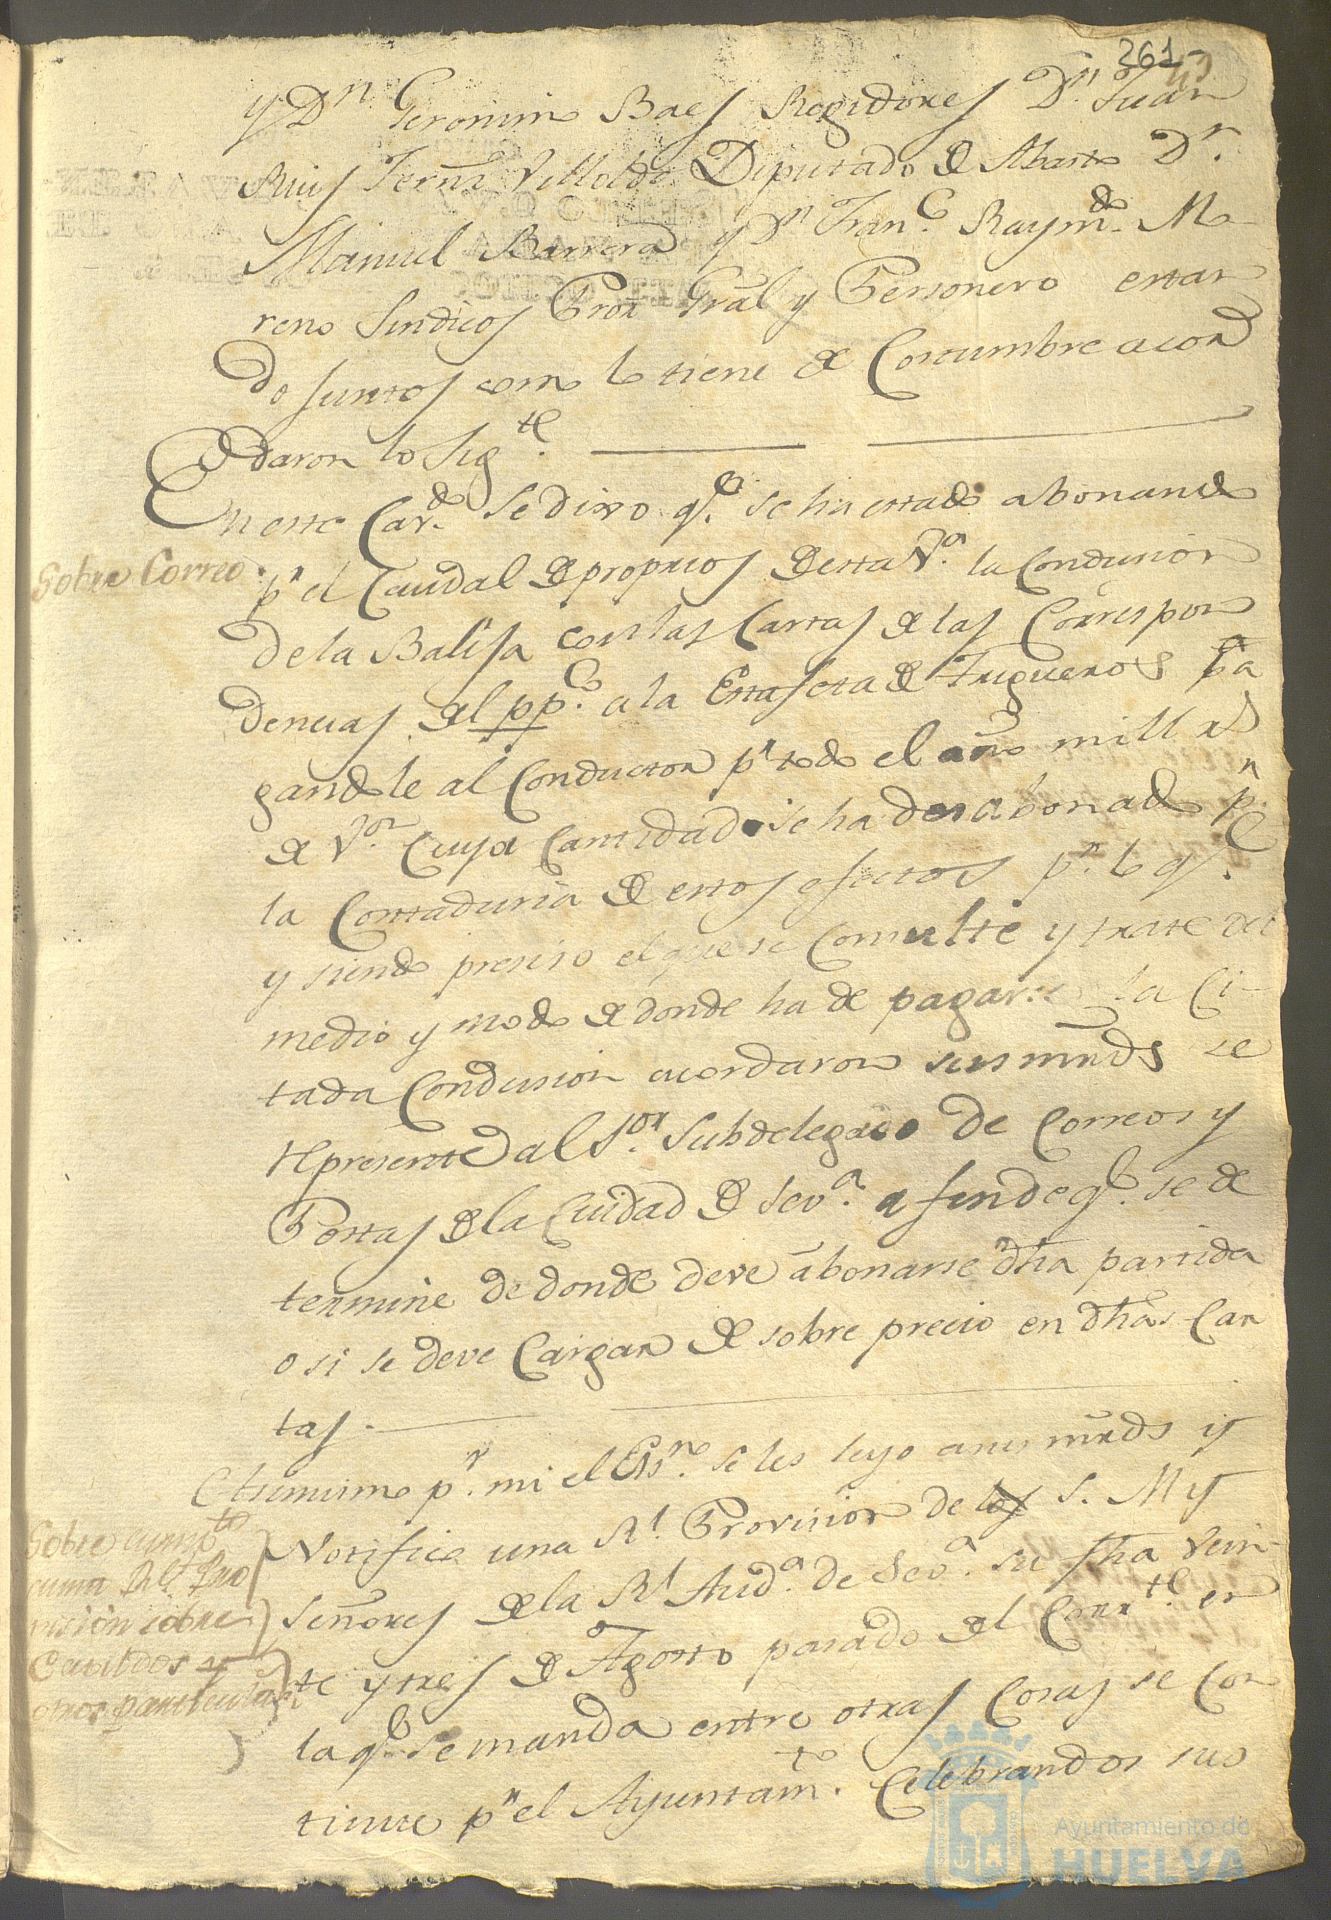 261
y Dn Geronimo Baes Regidores Dn Juan
Ruis Fern Villoldo Diputado de Abasto Dn
Manuel Barrera y Dn Franco Raymdo Mo
reno Sindicos Pror Gral y Personero estan
do juntos como lo tiene de Costumbre acor
daron lo Sigte
En este Cavdo se dixo qe se ha estado abonando
Sobre Correo
pr el Caudal de proprios de esta Va la Condusion
de la Balija con las Cartas de las Correspon
dencias del ppco a la Estafeta de Trigueros pa
gandole al Conductor pr todo el año mill rs
de Von Cuya Cantidad se ha desabonado pr
la Contaduria de estos efectos pr lo qe
y siendo presiso el que se Consulte y trate del
medio y modo de donde ha de pagarse la Ci-
tada Condusion acordaron sus mrds se
represente al Sor Subdelegado de Correos y
Postas de la Ciudad de Seva a fin de qe se de
termine de donde deve abonarse dha partida
o si se deve Cargar de sobre precio en dhas Car
tas.
Otrimismo pr mi el Essno se les leyo a sus mrds y
Notifico una Rl Provision de los S. M y
Sobre cumpto
Señores de la Rl Auda de Seva su fha Vein-
cuma Rl Pro
vision sobre
te y tres de Agosto pasado del Corrte en
Cavildos y
otros particulares
la qe se manda entre otras Cosas se Con
tinue pr el Ayuntamto Celebrandos sus
Ayuntamiento de
HUELVA